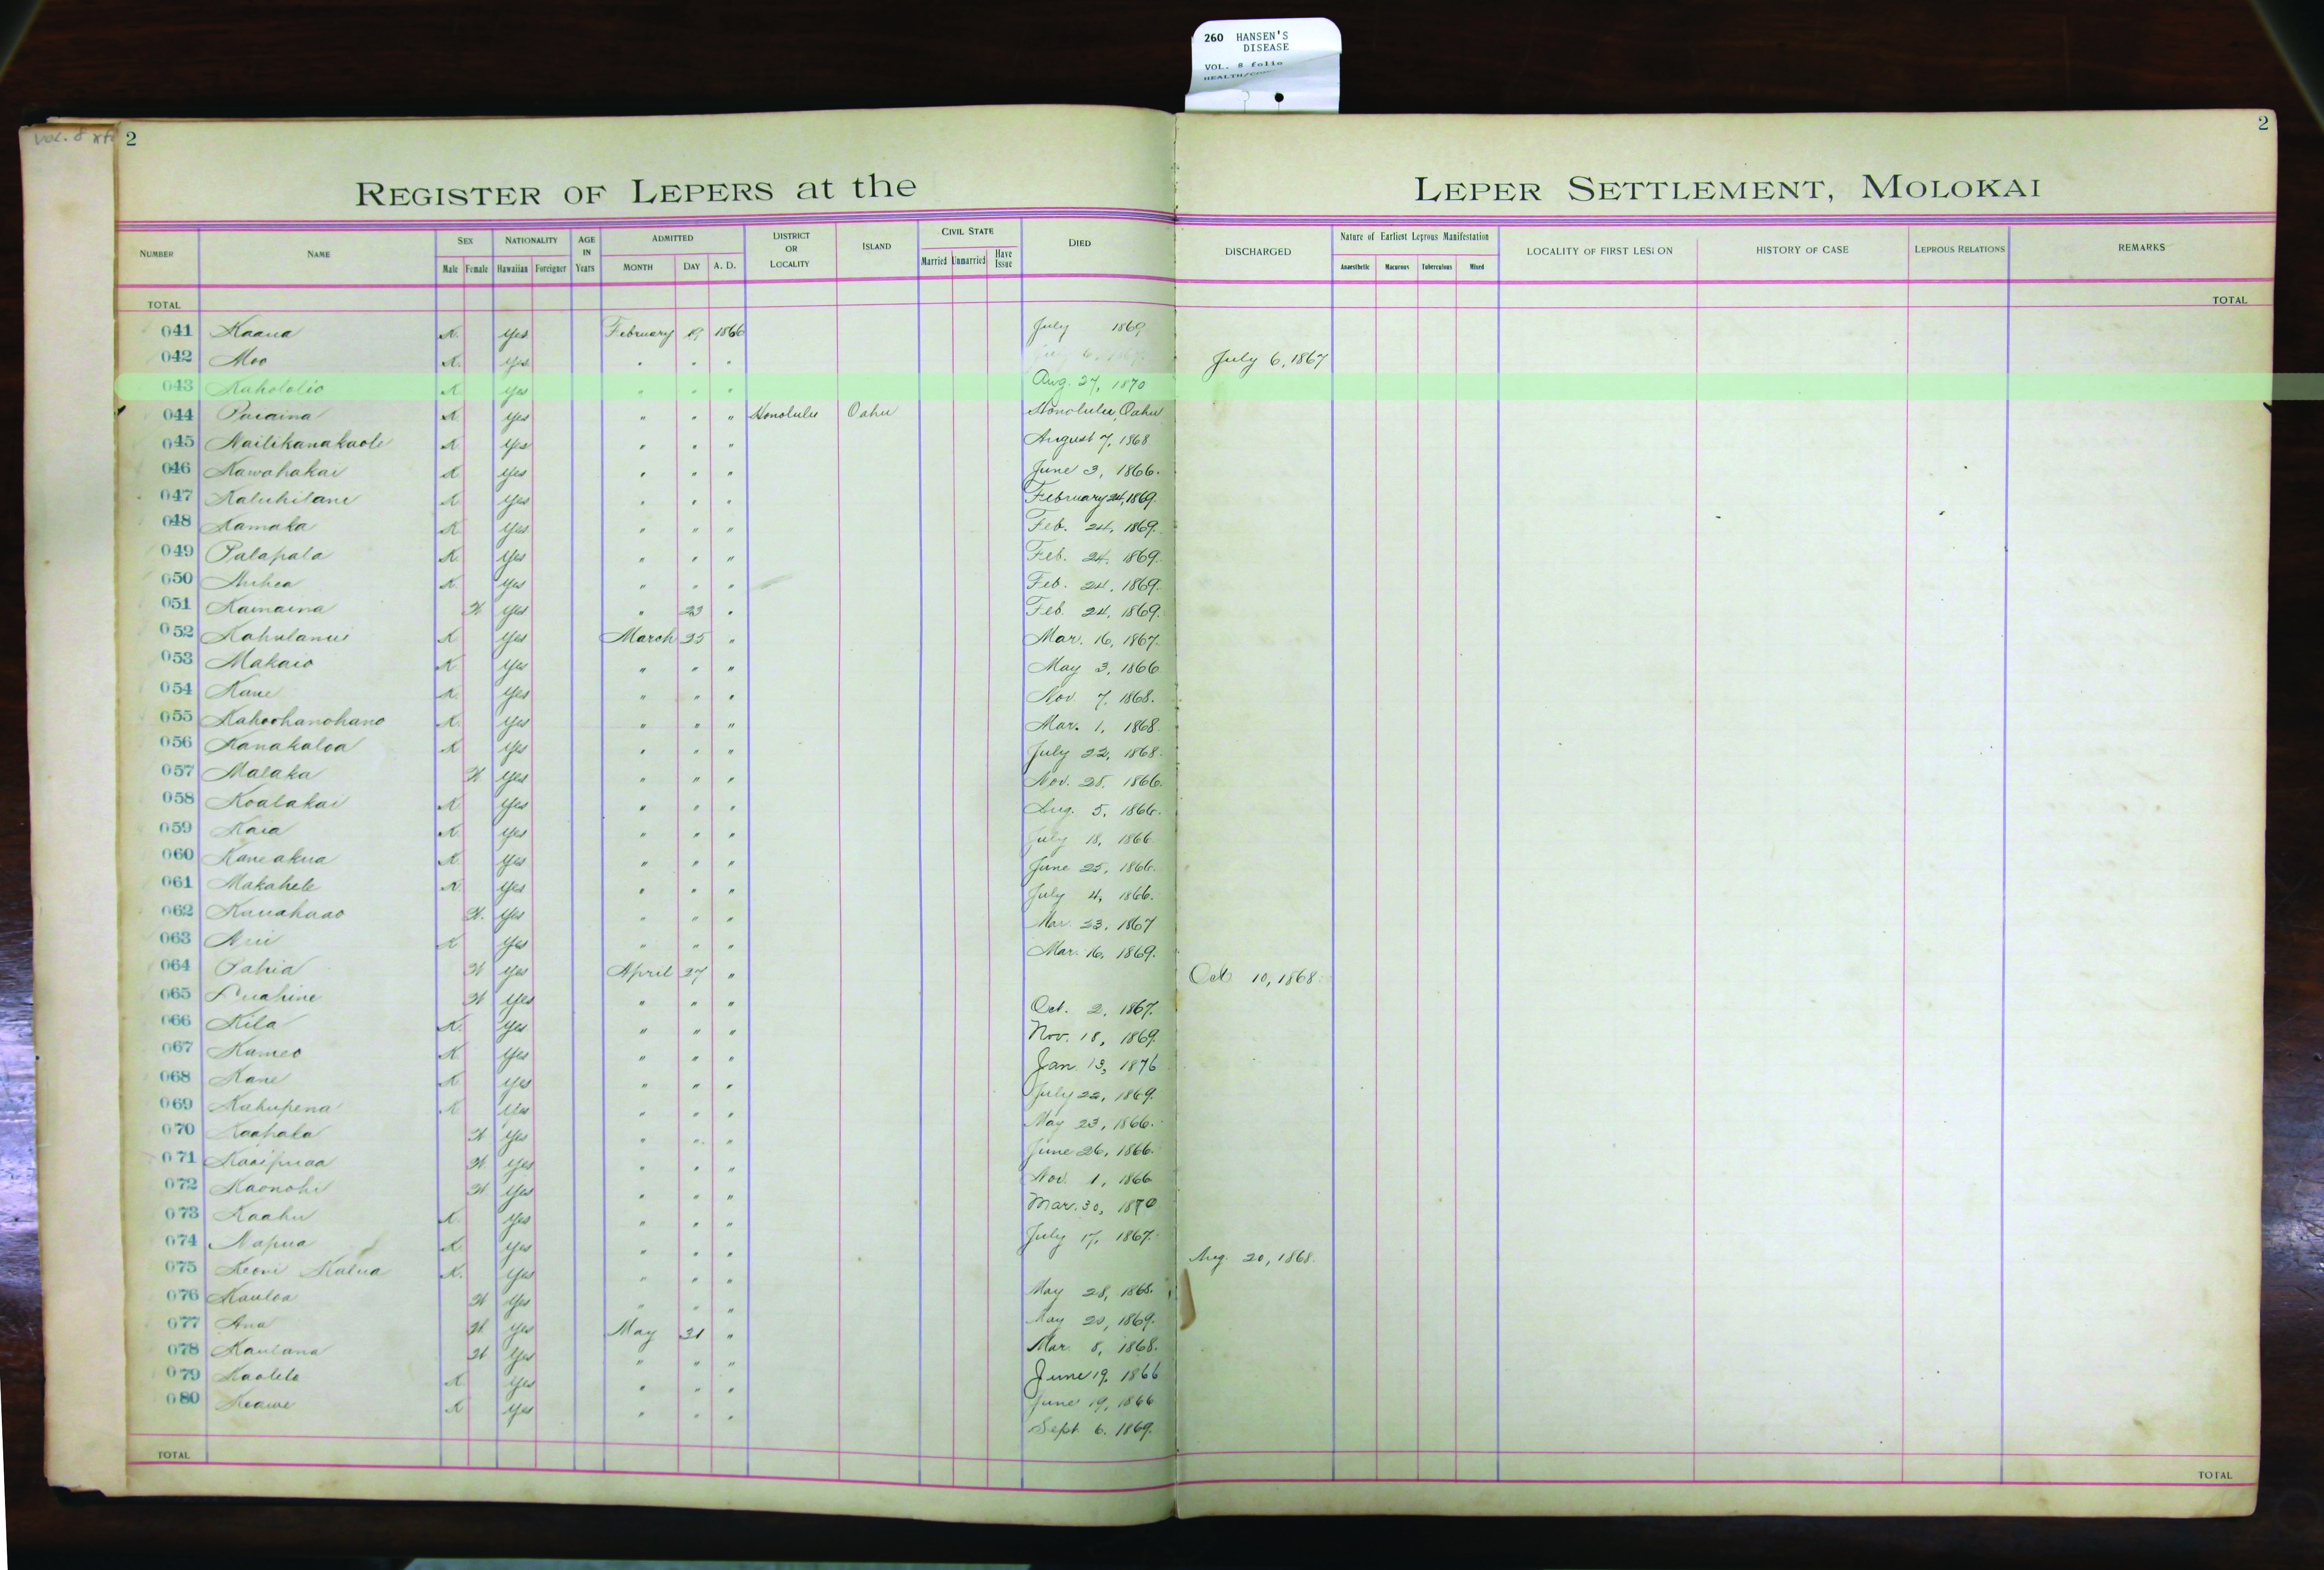 260 HANSEN'S
DISEASE
VOL. 8 folio
Vol. 8
2
2
REGISTER OF LEPERS at the LEPER SETTLEMENT, MOLOKAI
NUMBER NAME SEX NATIONALITY AGE IN Years ADMITTED DISTRICT OR LOCALITY ISLAND CIVIL STATE DIED DISCHARGED Nature of Earliest Leprous Manifestation LOCALITY OF FIRST LESION HISTORY OF CASE LEPROUS RELATIONS REMARKS
Male Female Hawaiian Foreigner MONTH DAY A. D. Married Unmarried Have Issue Anaesthetic Macurous Tuberculous Mixed
TOTAL TOTAL
041 Kaaua K. Yes February 19 1866 July 1869
042 Moo K. Yes " " " July 6, 1867
043 Kahololio K Yes " " " Aug. 27, 1870
044 Puaaina K Yes " " " Honolulu Oahu Honolulu, Oahu
045 Nailikanakaole K Yes " " " August 7, 1868
046 Kawahakai K Yes " " " June 3, 1866.
047 Kaluhilani K Yes " " " February 24, 1869.
048 Kamaka K Yes " " " Feb. 24, 1869.
049 Palapala K. Yes " " " Feb. 24, 1869.
050 Auhea K. Yes " " " Feb. 24, 1869.
051 Kamaina W. Yes " 23 " Feb. 24, 1869.
052 Kahulanui K Yes March 25 " Mar. 16, 1867.
053 Makaio K Yes " " " May 3, 1866
054 Kane K. Yes " " " Nov. 7, 1868.
055 Kahoohanohano K. Yes " " " Mar. 1, 1868.
056 Kanakaloa K Yes " " " July 22, 1868.
057 Malaka W Yes " " " Nov. 28, 1866.
058 Koalakai K Yes " " " Aug. 5, 1866.
059 Kaia K. Yes " " " July 18, 1866.
060 Kaneakua K Yes " " " June 25, 1866.
061 Makahele K. Yes " " " July 4, 1866.
062 Kauahaao W. Yes " " " Mar. 23, 1867
063 K Yes " " " Mar. 16, 1869.
064 Pahia W Yes April 27 " Oct 10, 1868.
065 Luahine W Yes " " " Oct. 2, 1867.
066 Kila K. Yes " " " Nov. 18, 1869.
067 Kameo K Yes " " " Jan. 13, 1876
068 Kane K Yes " " " July 22, 1869.
069 Kahupena K Yes " " " May 23, 1866.
070 Kaahala W Yes " " " June 26, 1866.
071 Kaaipuaa W. Yes " " " Nov. 1, 1866
072 Kaonohi W Yes " " " Mar. 30, 1870
073 Kaahu K. Yes " " " July 17, 1867.
074 Napua K. Yes " " " Aug. 20, 1868.
075 Keoni Kalua K. Yes " " " May 28, 1868.
076 Kauloa W Yes " " " May 20, 1869.
077 Ana W. Yes May 31 " Mar. 8, 1868.
078 Kaulana W Yes " " " June 19, 1866
079 Kaolelo K Yes " " " June 19, 1866
080 Keawe K Yes " " " Sept. 6, 1869.
TOTAL TOTAL